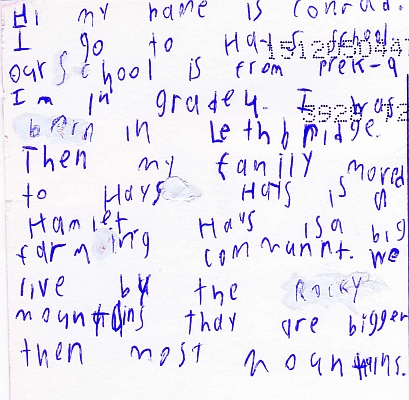 Hi my name is Conrad.
I go to Hays School.
our school is from prek-9
I'm in grade 4. I was
born in Lethbridge.
Then my family moved
to Hays Hays is a
Hamlet Hays is a big
farming communnt. we
live by the ROCKY
mountains thay are bigger
then most mountains.